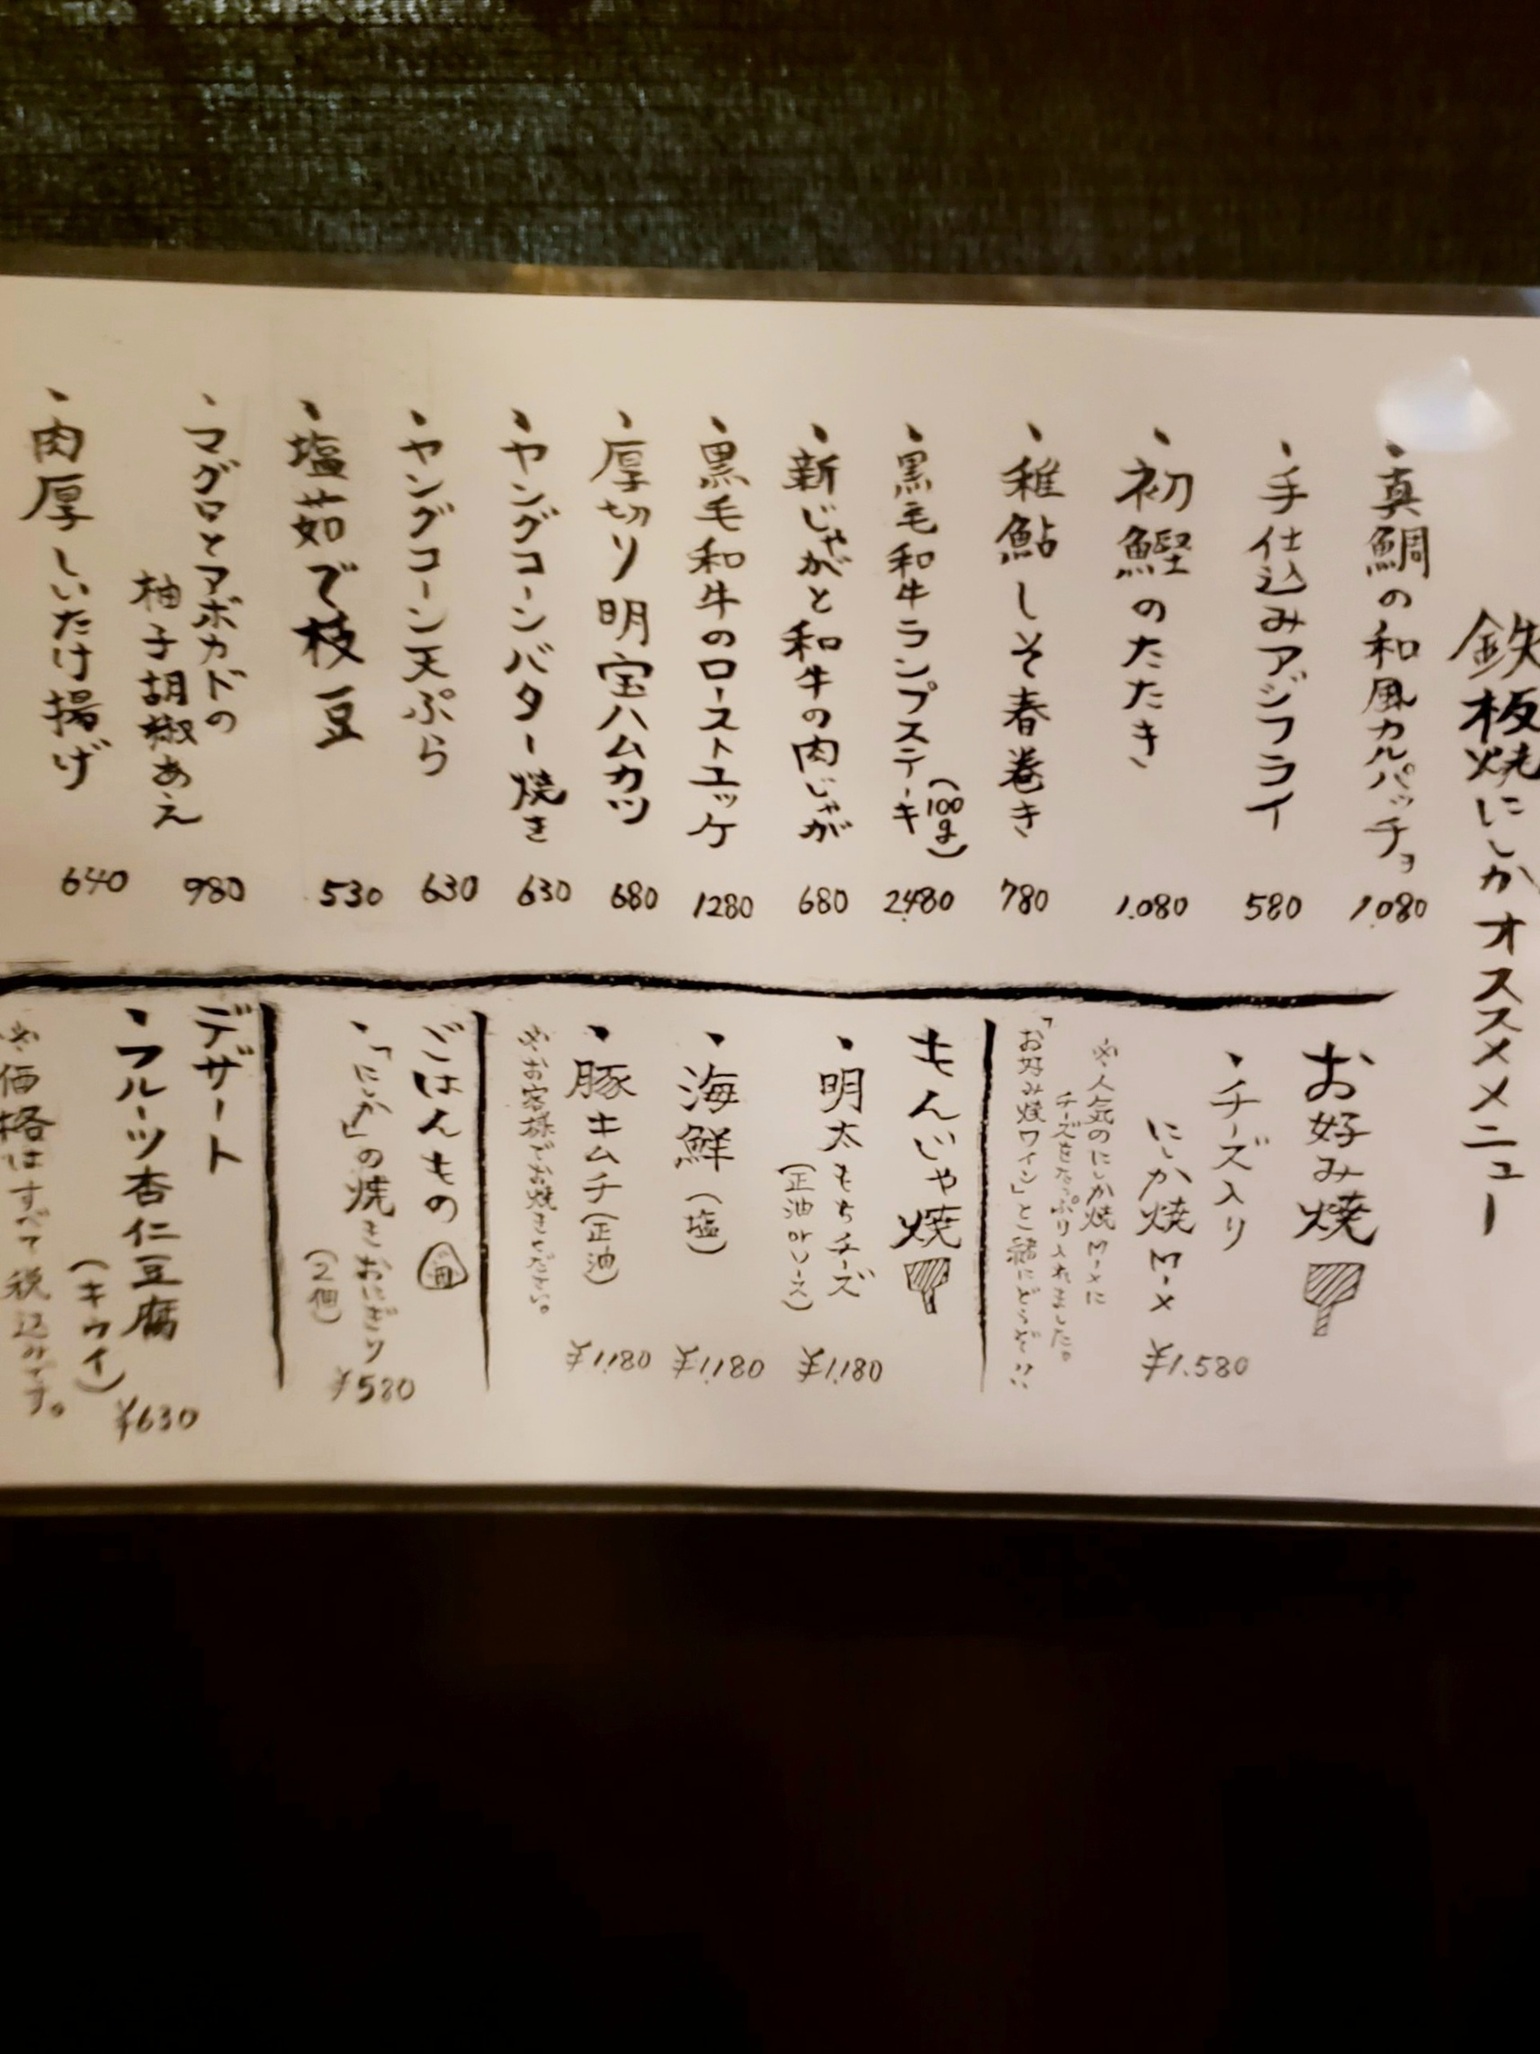 鉄板焼にしかオススメメニュー
・真鯛の和風カルパッチョ 1,080
・手仕込みアジフライ 580
・初鰹のたたき 1,080
・稚鮎しそ春巻き 780
・黒毛和牛ランプステーキ(100g) 2,480
・新じゃがと和牛の肉じゃが 680
・黒毛和牛のローストユッケ 1280
・厚切り明宝ハムカツ 680
・ヤングコーンバター焼き 630
・ヤングコーン天ぷら 630
・塩茹で枝豆 530
・マグロとアボカドの
柚子胡椒あえ 980
・肉厚しいたけ揚げ 640
お好み焼
・チーズ入り
にしか焼ミックス ¥1,580
※人気のにしか焼ミックスに
チーズをたっぷり入れました。
「お好み焼ワイン」と一緒にどうぞ!!
もんじゃ焼
・明太もちチーズ
(正油orソース) ¥1,180
・海鮮(塩) ¥1,180
・豚キムチ(正油) ¥1180
※お客様でお焼きください。
ごはんもの
・「にしか」の焼きおにぎり
(2個) ¥580
デザート
・フルーツ杏仁豆腐
(キウイ) ¥630
※価格はすべて税込みです。